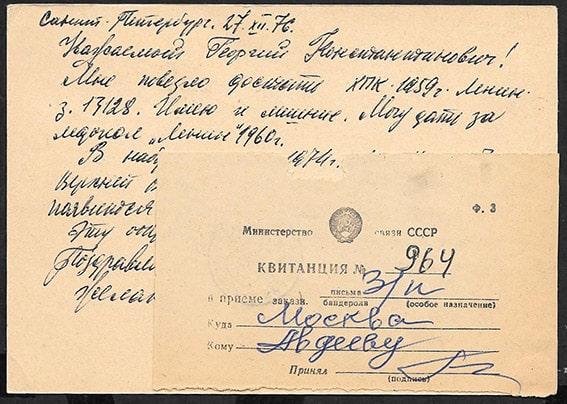 Санкт-Петербург. 27.XII.76.
Уважаемый Георгий Константинович!
Мне повезло достать ХПК 1959г. Ленин.
з. 13128. Имею и лишние. Могу дать за
ледокол „Ленин" 1960г.
В наб 1974г.
Верхней
появился
Эту
Поздравля
Желаю
Ф. 3
Министерство связи СССР
КВИТАНЦИЯ № 964
письма З/п
в приеме заказн. бандероли (особое назначение)
Куда Москва
Кому Авдееву
Принял
(подпись)